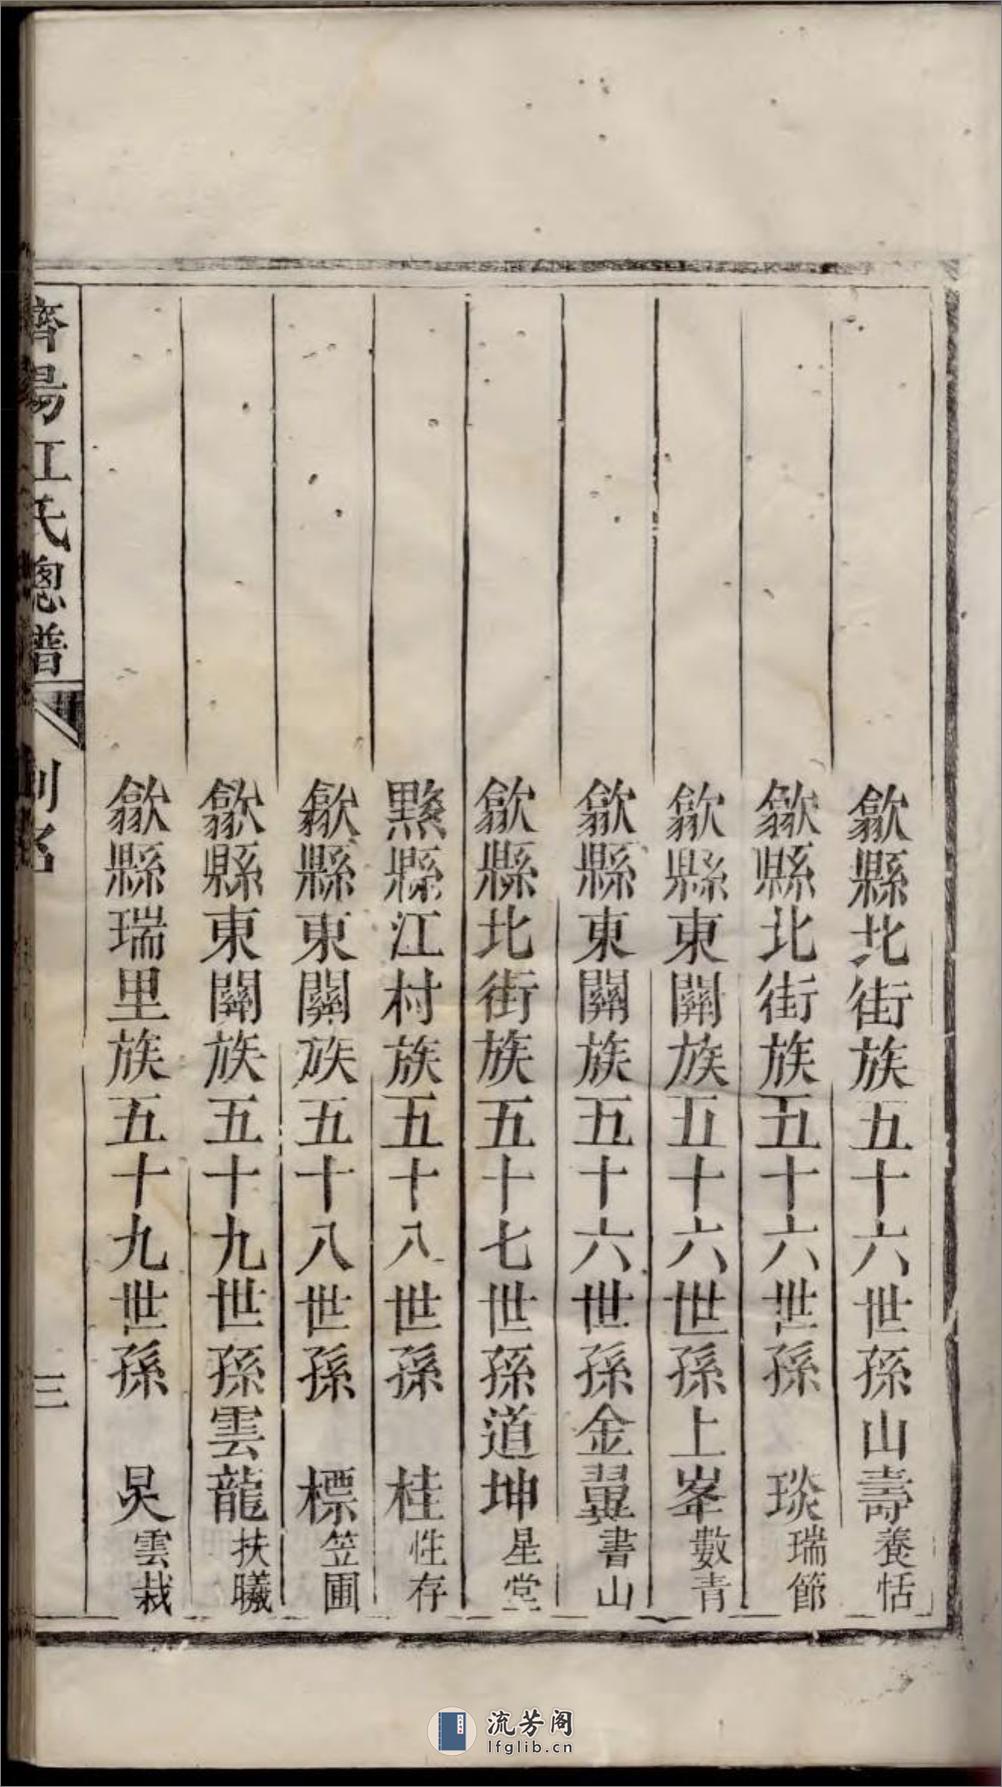 歙縣北街族五十六世孫山壽養恬
歙縣北街族五十六世孫 琰瑞節
歙縣東關族五十六世孫上峯數青
歙縣東關族五十六世孫金翼書山
歙縣北街族五十七世孫道坤星堂
黟縣江村族五十八世孫 桂性存
歙縣東關族五十八世孫 標笠圃
歙縣東關族五十九世孫雲龍扶曦
歙縣瑞里族五十九世孫 炅雲栽
濟陽江氏總譜 列名 三
流芳阁
lfglib.cn